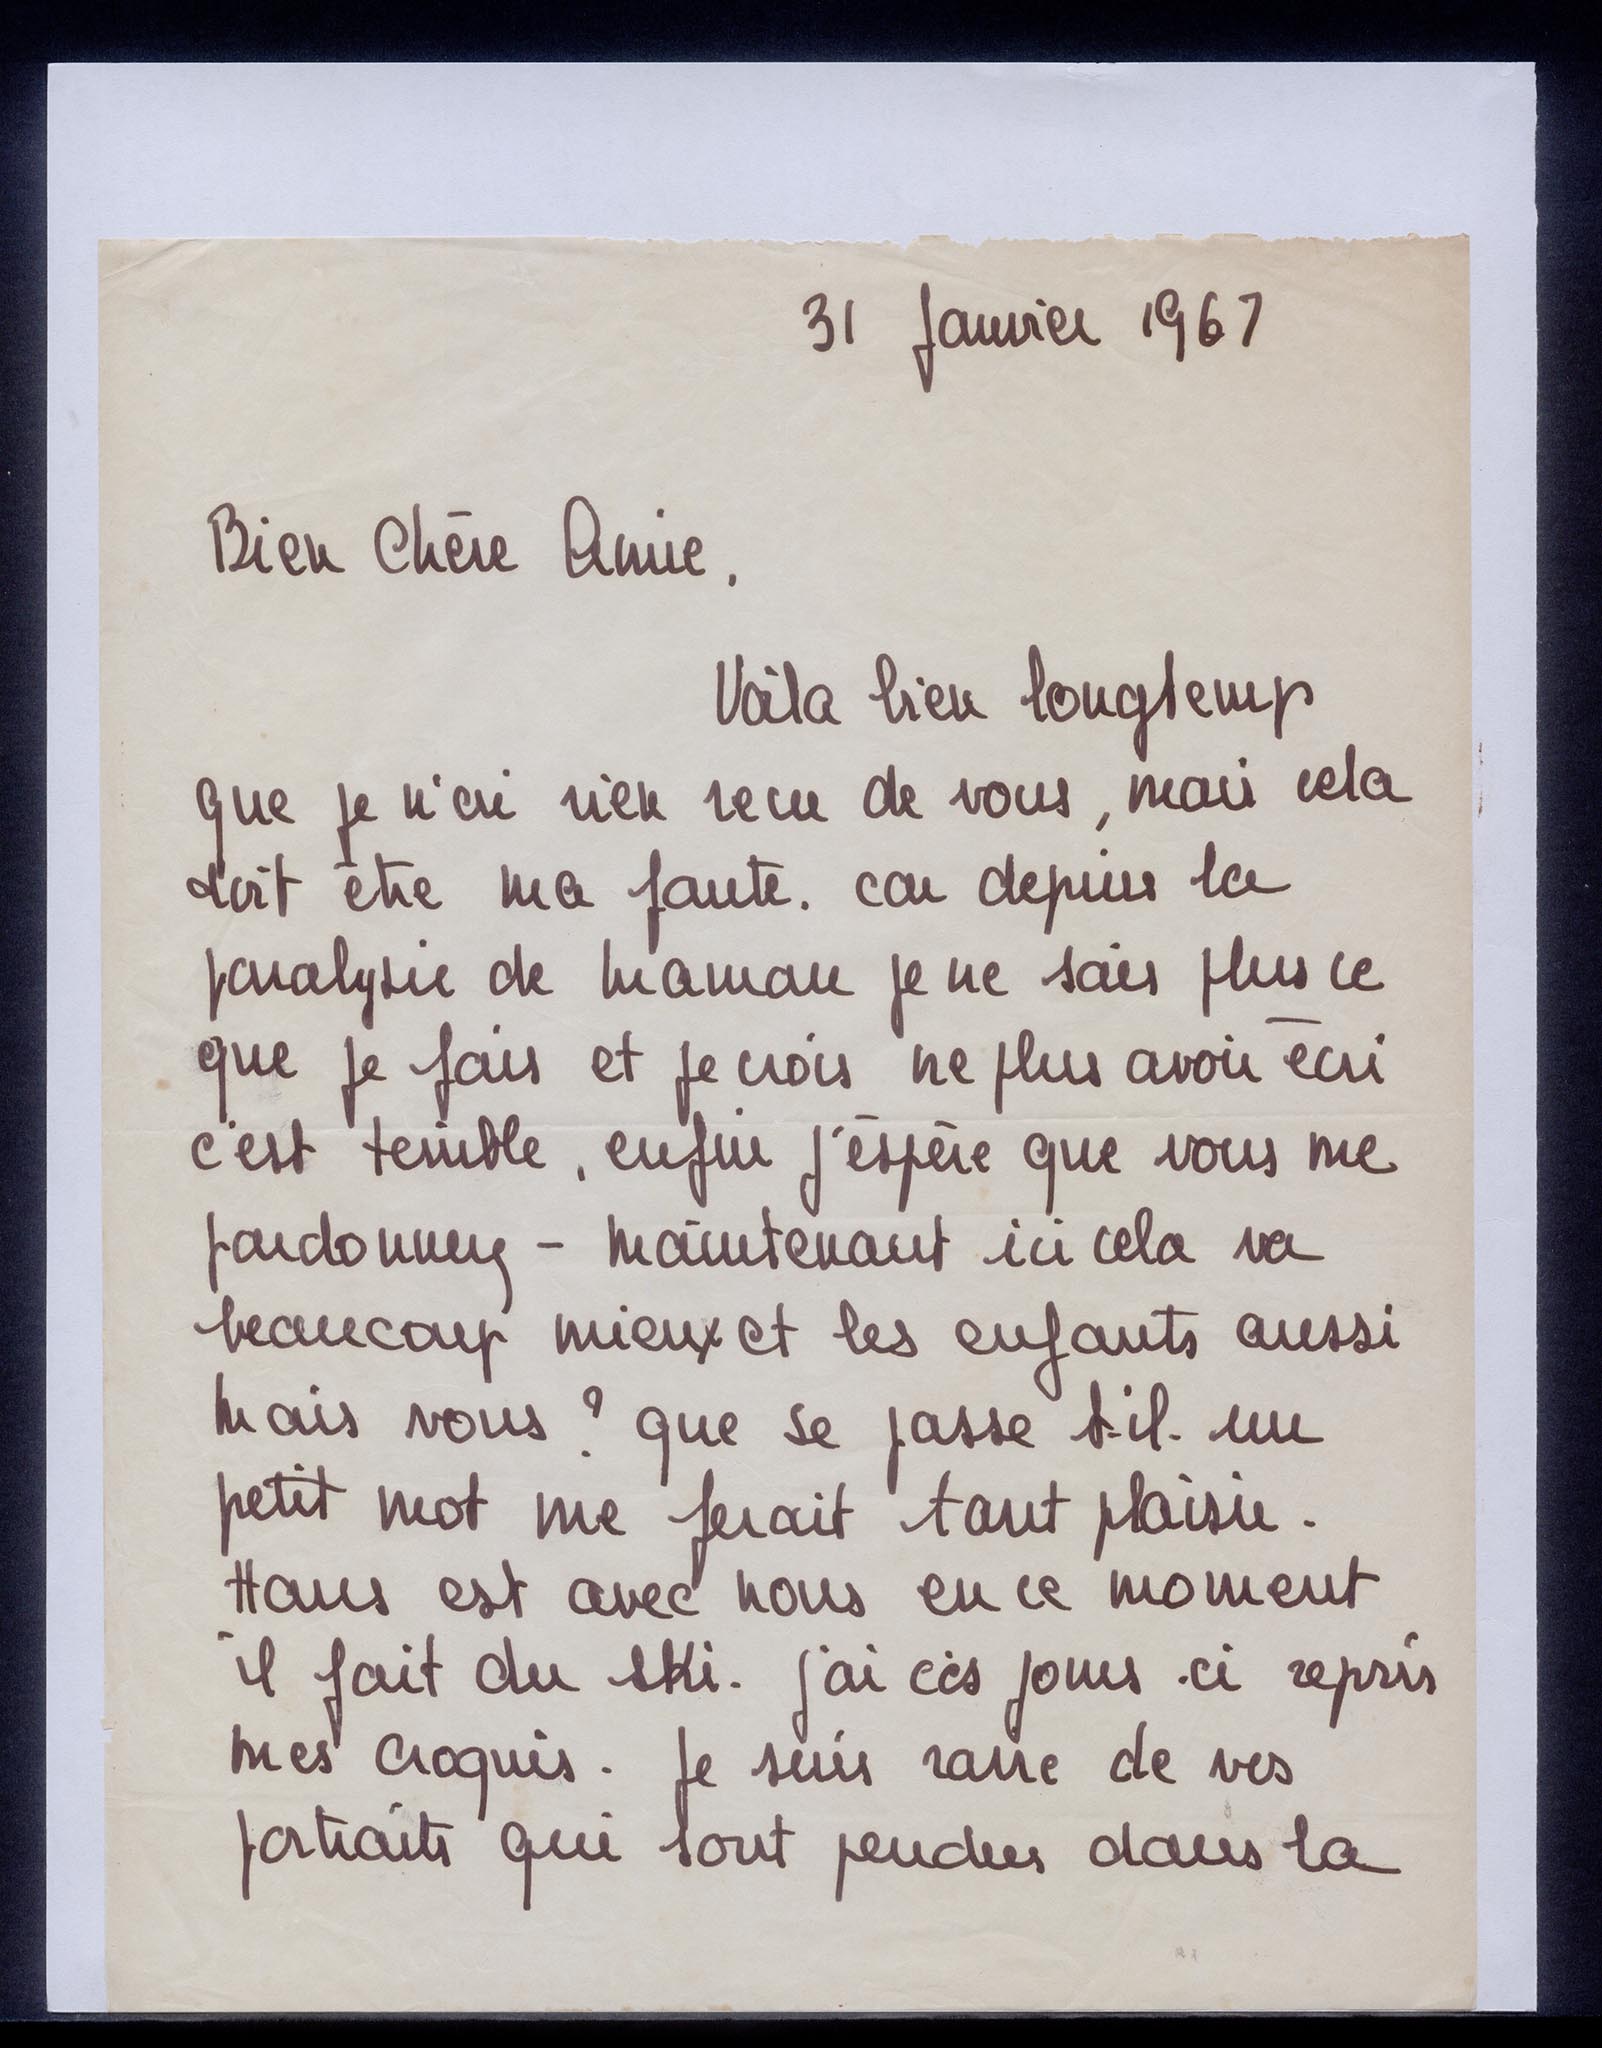 31 Janvier 1967
Bien Chère Amie,
Voila bien longtemp
que je n'ai rien recu de vous, mais cela
doit être ma faute. car depuis la
paralysie de maman je ne sais plus ce
que je fais et je crois ne plus avoir écri
c'est terrible, enfin j'éspère que vous me
pardonnez - maintenant ici cela va
beaucoup mieux et les enfants aussi
mais vous ? que se passe t-il. un
petit mot me ferait tant plaisir.
Hans est avec nous en ce moment
il fait du ski. j'ai ces jours-ci repris
mes croquis. je suis ravie de vos
portraits qui sont pendus dans la